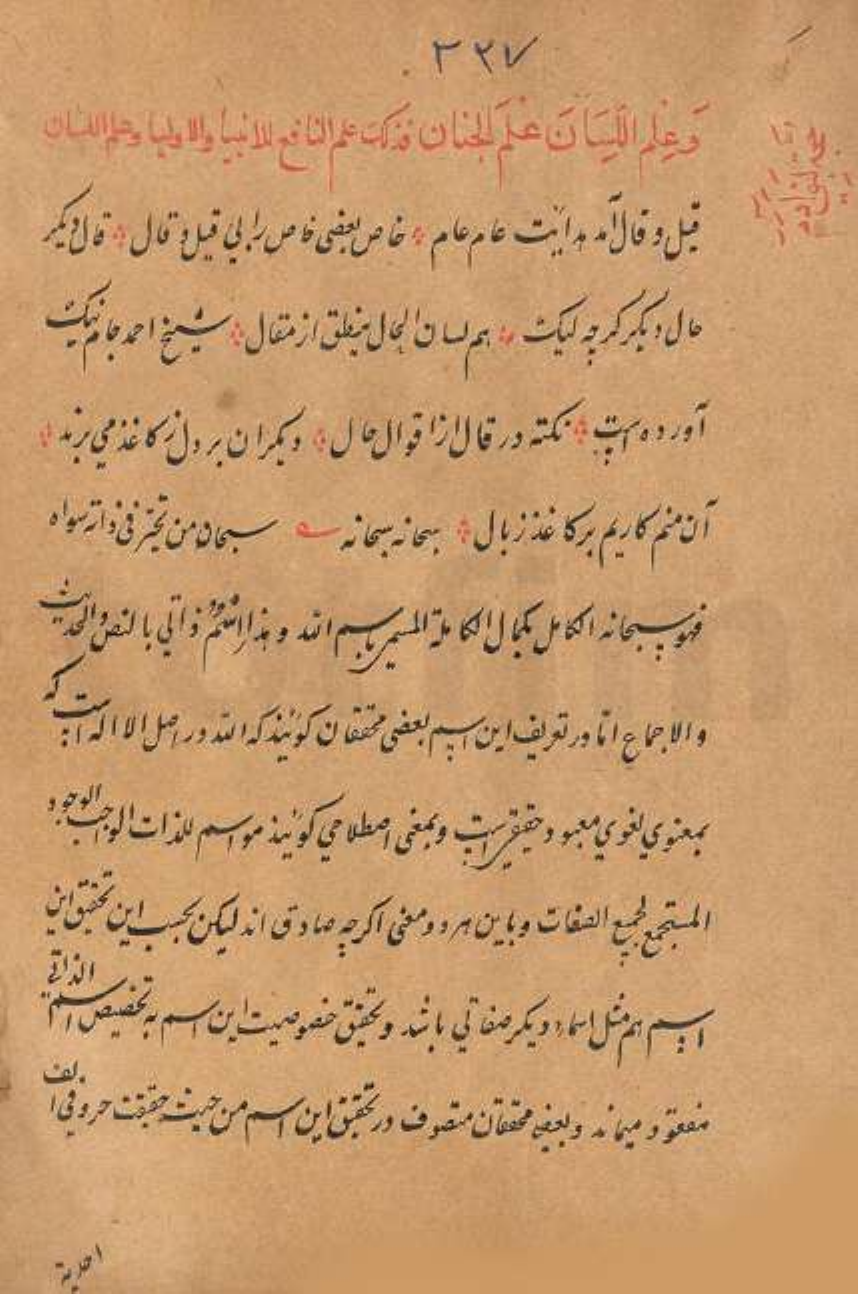 ٣٣٧
وَعِلم اللِّسَانَ عَلَمَ الجنان فذلک علم النافع للانبیا والاولیا وعلم اللسان
قیل و قال آمد هدایت عام عام خاص بعضی خاص را بی قیل و قال قال دیکر
حال دیکر کرچه لیک هم لسان الحال ینطق از مقال شیخ احمد جام نیک
آورده است نکته در قال از اقوال حال دیکران بر دل ز کاغذ می برند
آن منم کاریم بر کاغذ ز بال سبحانه سبحانه سبحان من تحیّر فی ذاته سواه
فهو سبحانه الکامل بکمال الکاملة المسمی باسم الله و هذا اسْمٌ ذاتی بالنص والحدیث
والاجماع امّا در تعریف این اسم بعضی محققان کوئیند که الله در اصل الا اله است که
بمعنوی لغوی معبود حقیقی است وبمغی اصطلاحی کوئیند هو اسم للذات الواجب الوجود
المستجمع لجمیع الصفات و باین هر دو معنی اکرچه صادق اند لیکن بحسب این تحقیق این
اسم هم مثل اسماء دیکر صفاتی باشد وتحقیق خصوصیت این اسم به تخصیص اسم الذاتی
مفقود میماند وبعضی محققان متصوف در تحقیق این اسم من حیث حقیقت حروفی الف
احدیة